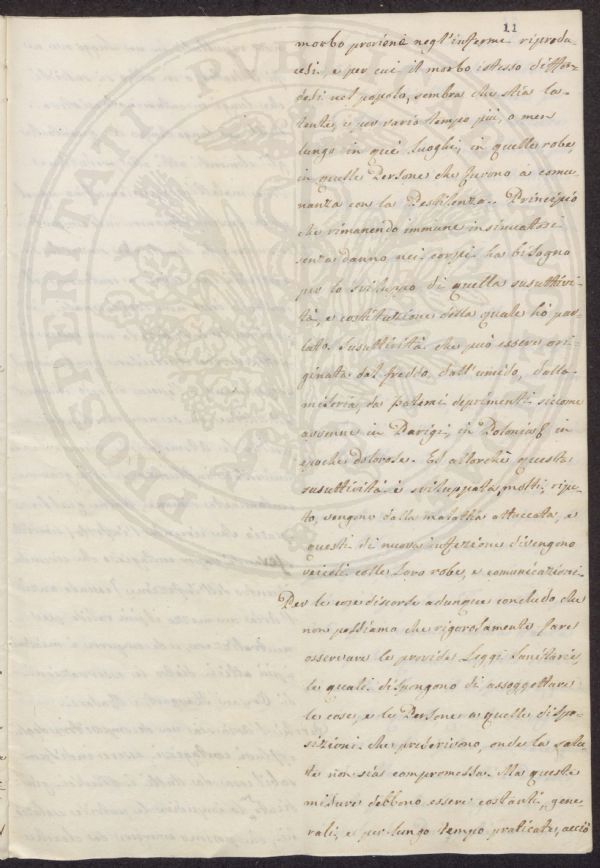 11
morbo proviene negl'infermi riprodu-
cesi, e per cui il morbo istesso diffon-
desi nel popolo, sembra che stia la-
tente, e per vario tempo più, o men
lungo in que' luoghi, in quelle robe,
in quelle Persone che furono a comu-
nanza con la Pestilenza. Principio
che rimanendo immune insinuatosi
senza danno nei corpi ha bisogno
per lo sviluppo di quella susuttivi-
tà, e costituzione della quale hò par-
lato. Susuttività che può essere ori-
ginata dal freddo, dall'umido, dalla
miseria, da patemi deprimenti siccome
avvenne in Parigi, in Polonia, in
epoche dolorose. Ed allorchè questa
susuttività è sviluppata, molti, ripe-
to, vengono dalla malattia attaccati, e
questi di nuova infezione divengono
veicoli colle loro robe, e comunicazioni.
Per le cose discorse adunque concludo che
non possiamo che rigorosamente fare
osservare le provide Leggi Sanitarie,
le quali dispongono di assoggettare
le cose, e le Persone a quelle dispo-
sizioni che prescrivono, onde la salu-
te non sia compromessa. Ma queste
misure debbono essere costanti, gene-
rali, e per lungo tempo praticate, acciò
PROSPERITATI PUBLICAE